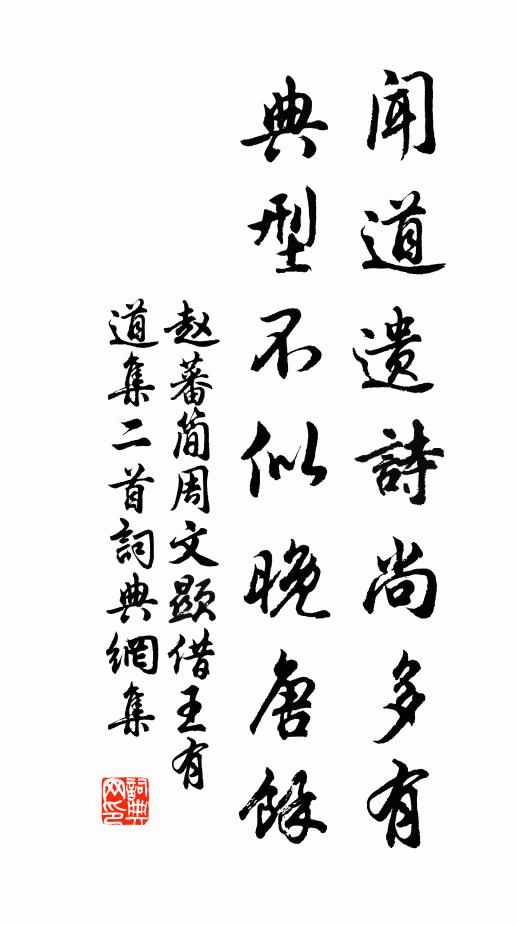 聞道遺詩尚多有
典型不似晚唐餘
赵蕃简周文顯借王有
道集二首詞典網集
詞典网印